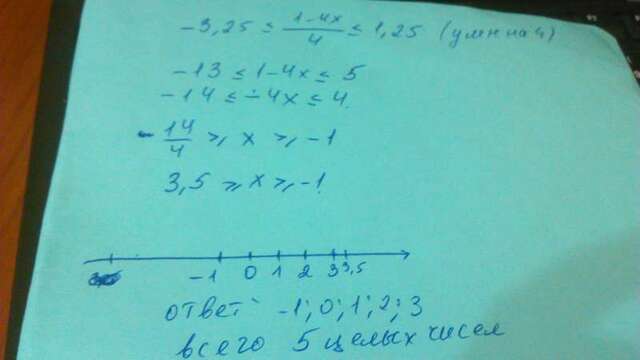 -3,25 ≤ (1-4x)/4 ≤ 1,25 (умн на 4)
-13 ≤ 1-4x ≤ 5
-14 ≤ -4x ≤ 4
14/4 ≥ x ≥ -1
3,5 ≥ x ≥ -1
-1 0 1 2 3 3,5
ответ: -1; 0; 1; 2; 3
всего 5 целых чисел